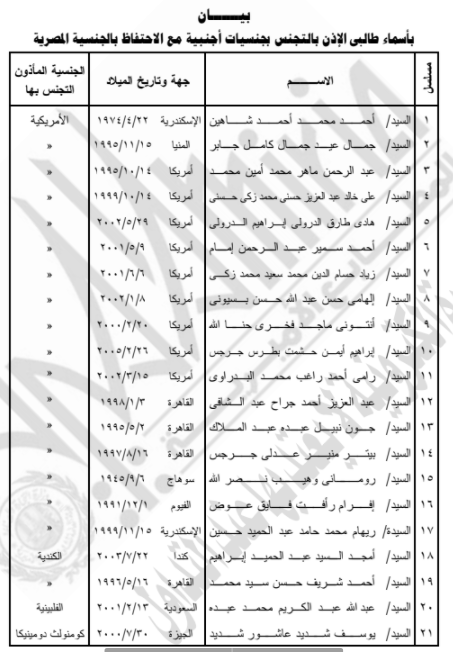 بيـــــان
بأسماء طالبى الإذن بالتجنس بجنسيات أجنبية مع الاحتفاظ بالجنسية المصرية
مسلسل الاســـــم جهة وتاريخ الميلاد الجنسية المأذون التجنس بها
١ السيد/ أحمـد محمـد أحمـد شـاهين الإسكندرية ١٩٧٤/٤/٢٢ الأمريكية
٢ السيد/ جمـال عيـد جمـال كامـل جـابر المنيا ١٩٩٥/١١/١٥ «
٣ السيد/ عبد الرحمن ماهر محمد أمين محمـد أمريكا ١٩٩٥/١٠/١٤ «
٤ السيد/ على خالد عبد العزيز حسنى محمد زكى حسنى أمريكا ١٩٩٩/١٠/١٤ «
٥ السيد/ هادى طارق الدرولى إبـراهيم الـدرولى أمريكا ٢٠٠٢/٥/٢٩ «
٦ السيد/ أحمـد سـمير عبـد الـرحمن إمـام أمريكا ٢٠٠١/٥/٩ «
٧ السيد/ زياد حسام الدين محمد سعيد محمد زكـى أمريكا ٢٠٠١/٦/٦ «
٨ السيد/ إلهامى حسن عبد الله حسـن بسـيونى أمريكا ٢٠٠٢/١/٨ «
٩ السيد/ أنتـونى ماجـد فخـرى حنـا الله أمريكا ٢٠٠٠/٢/٢٠ «
١٠ السيد/ إبراهيم أيمـن حشـمت بطـرس جـرجس أمريكا ٢٠٠٥/٢/٢٦ «
١١ السيد/ رامى أحمـد راغـب محمـد البـدراوى أمريكا ٢٠٠٢/٣/١٥ «
١٢ السيد/ عبد العزيز أحمد جراح عبد الشـافى القاهرة ١٩٩٨/١/٣ «
١٣ السيد/ جـون نبيـل عبـده عبـد المـلاك القاهرة ١٩٩٥/٥/٢ «
١٤ السيد/ بيتـر منيـر عـدلى جـرجس القاهرة ١٩٩٧/٨/١٦ «
١٥ السيد/ رومـانى وهيـب نـصر الله سوهاج ١٩٤٥/٩/٦ «
١٦ السيد/ إفـرام رأفـت فـايق عـوض الفيوم ١٩٩١/١٢/١ «
١٧ السيدة/ ريهام محمد حامد عبد الحميد حسـين الإسكندرية ١٩٩٩/١١/١٥ «
١٨ السيد/ أمجـد السـيد عبـد الحميـد إبـراهيم كندا ٢٠٠٣/٧/٢٢ الكندية
١٩ السيد/ أحمـد شـريف حسـن سـيد محمـد القاهرة ١٩٩٦/٥/١٦ «
٢٠ السيد/ عبدالله عبـد الكـريم محمـد عبـده السعودية ٢٠٠١/٢/١٣ الفلبينية
٢١ السيد/ يوسـف شـديد عاشـور شـديد الجيزة ٢٠٠٠/٧/٣٠ كومنولث دومينيكا